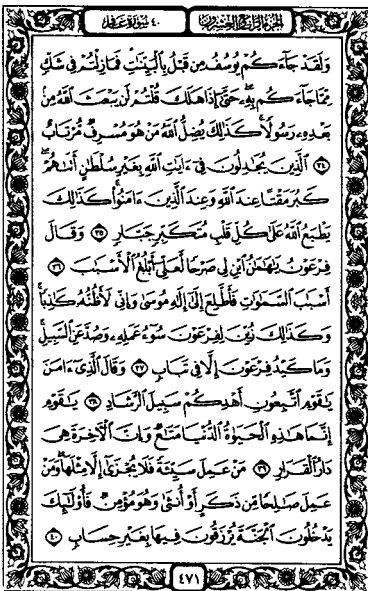 الجزء الرابع والعشرون ٤٠ سورة غافر
وَلَقَدْ جَآءَكُمْ يُوسُفُ مِن قَبْلُ بِٱلْبَيِّنَٰتِ فَمَازِلْتُمْ فِى شَكٍّ
مِّمَّا جَآءَكُم بِهِۦ حَتَّىٰٓ إِذَا هَلَكَ قُلْتُمْ لَن يَبْعَثَ ٱللَّهُ مِنۢ
بَعْدِهِۦ رَسُولًا ۚ كَذَٰلِكَ يُضِلُّ ٱللَّهُ مَنْ هُوَ مُسْرِفٌ مُّرْتَابٌ
٣٤ ٱلَّذِينَ يُجَٰدِلُونَ فِىٓ ءَايَٰتِ ٱللَّهِ بِغَيْرِ سُلْطَٰنٍ أَتَىٰهُمْ ۖ
كَبُرَ مَقْتًا عِندَ ٱللَّهِ وَعِندَ ٱلَّذِينَ ءَامَنُوا۟ ۚ كَذَٰلِكَ
يَطْبَعُ ٱللَّهُ عَلَىٰ كُلِّ قَلْبِ مُتَكَبِّرٍ جَبَّارٍ ٣٥ وَقَالَ
فِرْعَوْنُ يَٰهَٰمَٰنُ ٱبْنِ لِى صَرْحًا لَّعَلِّىٓ أَبْلُغُ ٱلْأَسْبَٰبَ ٣٦
أَسْبَٰبَ ٱلسَّمَٰوَٰتِ فَأَطَّلِعَ إِلَىٰٓ إِلَٰهِ مُوسَىٰ وَإِنِّى لَأَظُنُّهُۥ كَٰذِبًا ۚ
وَكَذَٰلِكَ زُيِّنَ لِفِرْعَوْنَ سُوٓءُ عَمَلِهِۦ وَصُدَّ عَنِ ٱلسَّبِيلِ ۚ
وَمَا كَيْدُ فِرْعَوْنَ إِلَّا فِى تَبَابٍ ٣٧ وَقَالَ ٱلَّذِىٓ ءَامَنَ
يَٰقَوْمِ ٱتَّبِعُونِ أَهْدِكُمْ سَبِيلَ ٱلرَّشَادِ ٣٨ يَٰقَوْمِ
إِنَّمَا هَٰذِهِ ٱلْحَيَوٰةُ ٱلدُّنْيَا مَتَٰعٌ وَإِنَّ ٱلْءَاخِرَةَ هِىَ
دَارُ ٱلْقَرَارِ ٣٩ مَنْ عَمِلَ سَيِّئَةً فَلَا يُجْزَىٰٓ إِلَّا مِثْلَهَا ۖ وَمَنْ
عَمِلَ صَٰلِحًا مِّن ذَكَرٍ أَوْ أُنثَىٰ وَهُوَ مُؤْمِنٌ فَأُو۟لَٰٓئِكَ
يَدْخُلُونَ ٱلْجَنَّةَ يُرْزَقُونَ فِيهَا بِغَيْرِ حِسَابٍ ٤٠
٤٧١